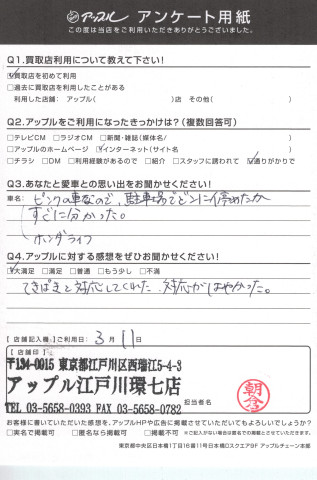 アップル アンケート用紙
この度は当店をご利用いただきありがとうございました。
Q1.買取店利用について教えて下さい!
☑買取店を初めて利用
□過去に買取店を利用したことがある
利用した店舗: アップル( )店 その他( )
Q2.アップルをご利用になったきっかけは?(複数回答可)
□テレビCM □ラジオCM □新聞・雑誌(媒体名/ )
□アップルのホームページ ☑インターネット(サイト名 )
□チラシ □DM □利用経験があるので □紹介 □スタッフに誘われて ☑通りがかりで
Q3.あなたと愛車との思い出をお聞かせください!
車名: ピンクの車なので、駐車場でどこに停めたか
すぐに分かった。
ホンダライフ
Q4.アップルに対する感想をぜひお聞かせください!
☑大満足 □満足 □普通 □もう少し □不満
てきぱきと対応してくれた 対応がはやかった。
【店舗記入欄】ご利用日: 3月11日
【店舗印】
〒134-0015 東京都江戸川区西瑞江5-4-3
アップル江戸川環七店
TEL 03-5658-0393 FAX 03-5658-0782
担当者名
朝倉
お客様に書いていただいた感想を、アップルHPや広告に掲載させていただいてもよろしいでしょうか?
□実名で掲載可 □匿名なら掲載可 □掲載不可 ※ご記入がない場合は匿名での掲載とさせていただきます。
東京都中央区日本橋1丁目16番11号日本橋Dスクエア8F アップルチェーン本部